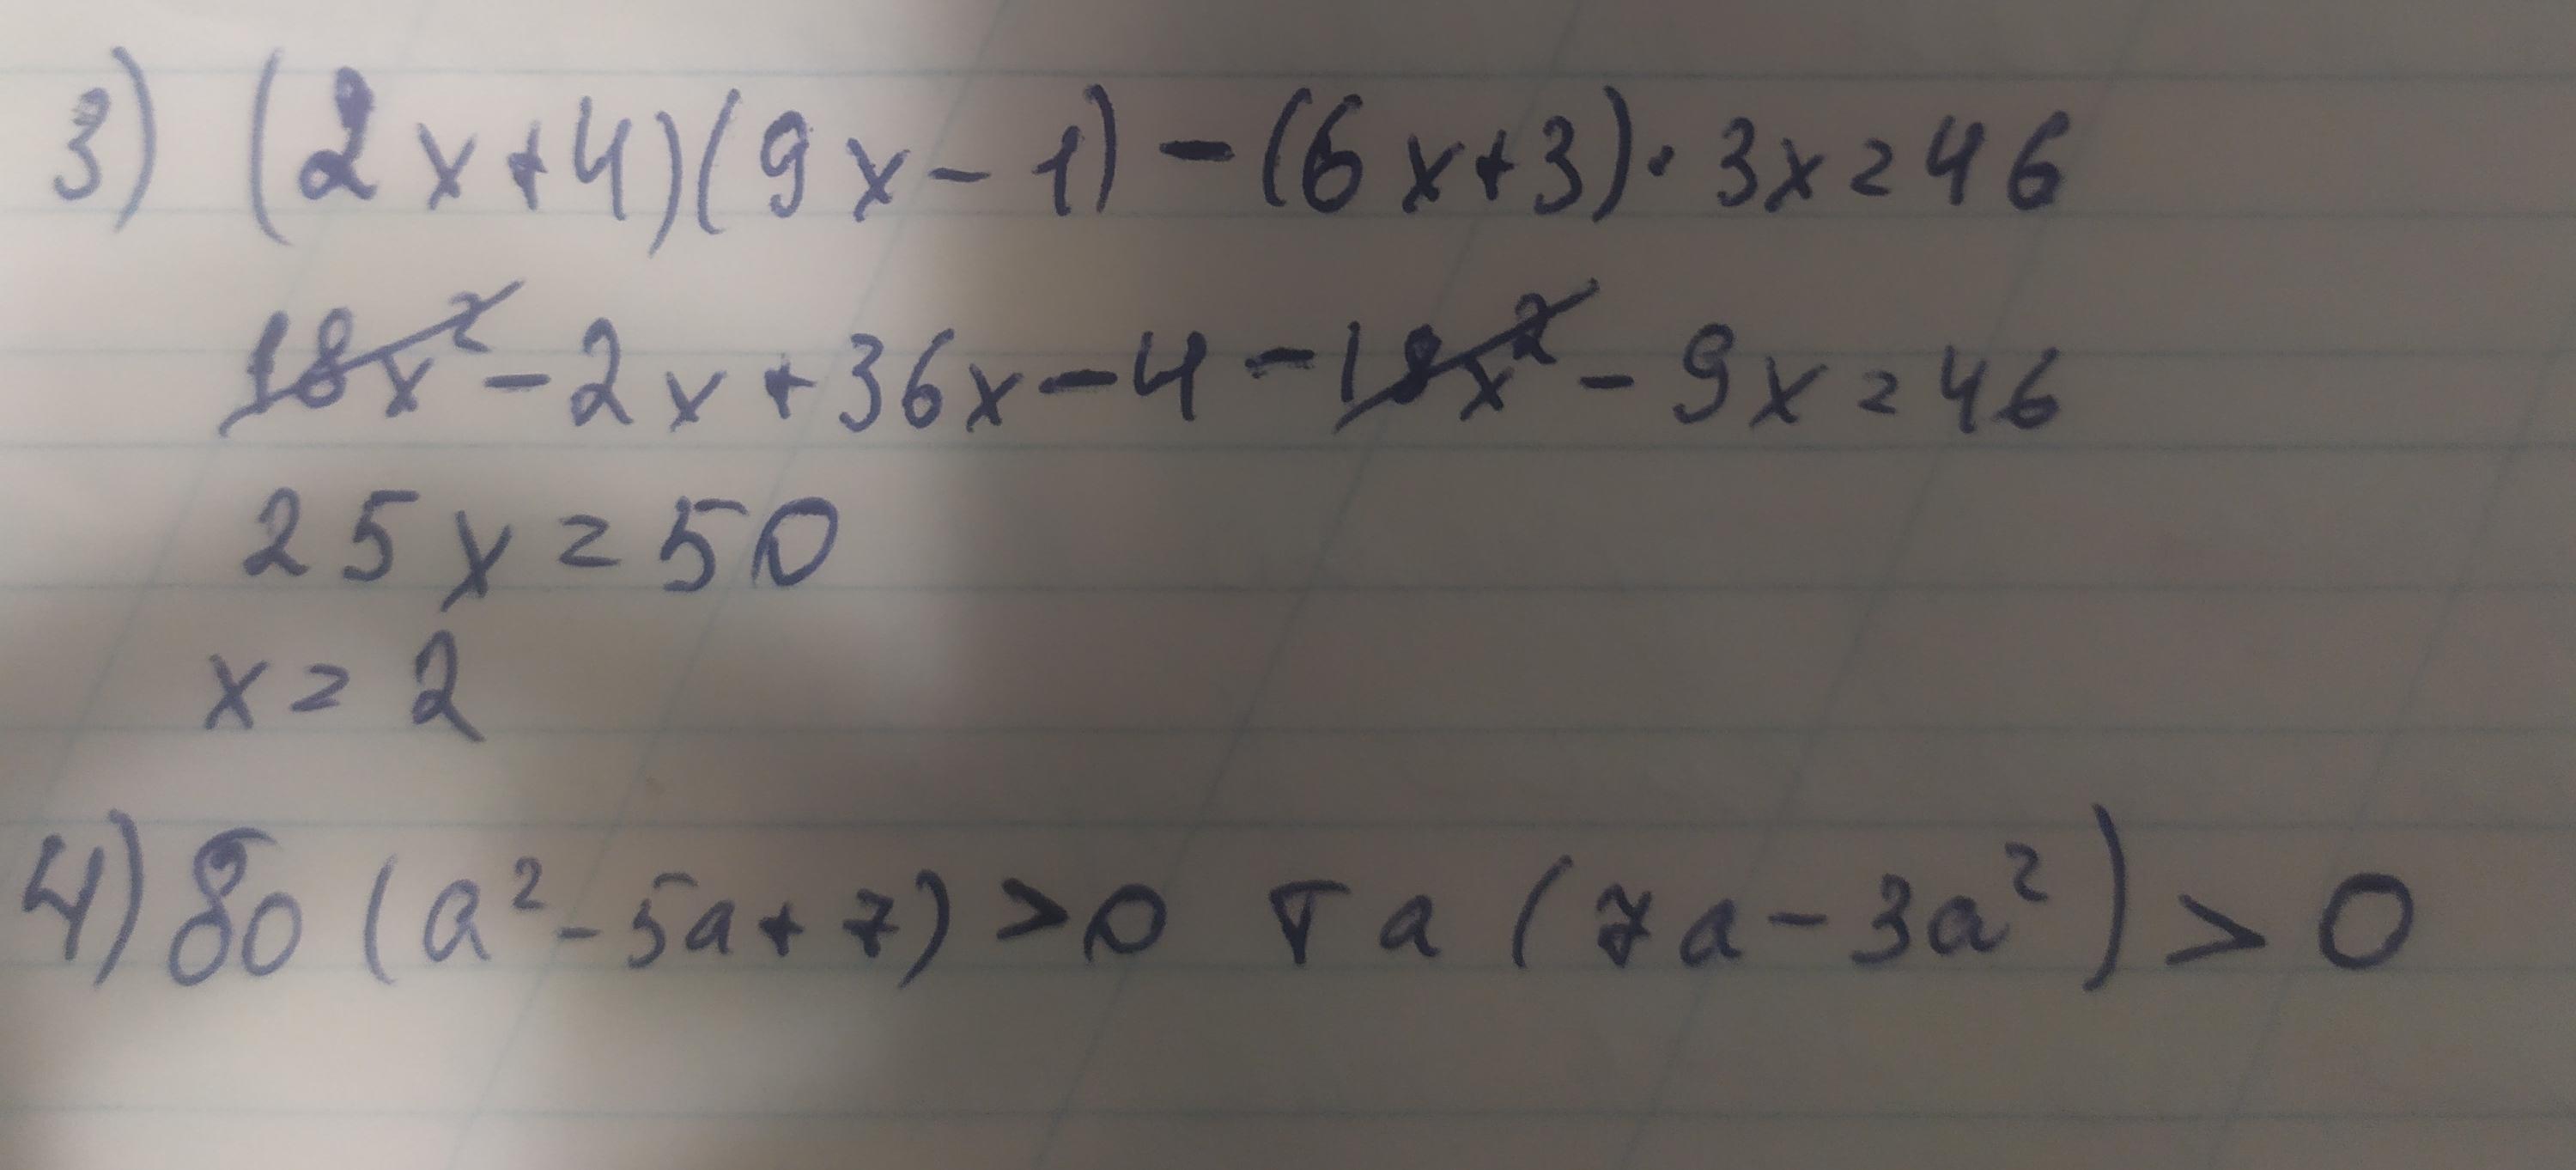 3) (2x+4)(9x-1)-(6x+3)·3x=46
18x²-2x+36x-4-18x²-9x=46
25x=50
x=2
4) бо (a²-5a+7)>0 та (7a-3a²)>0